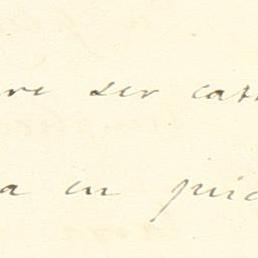 re ser cat
a en juic